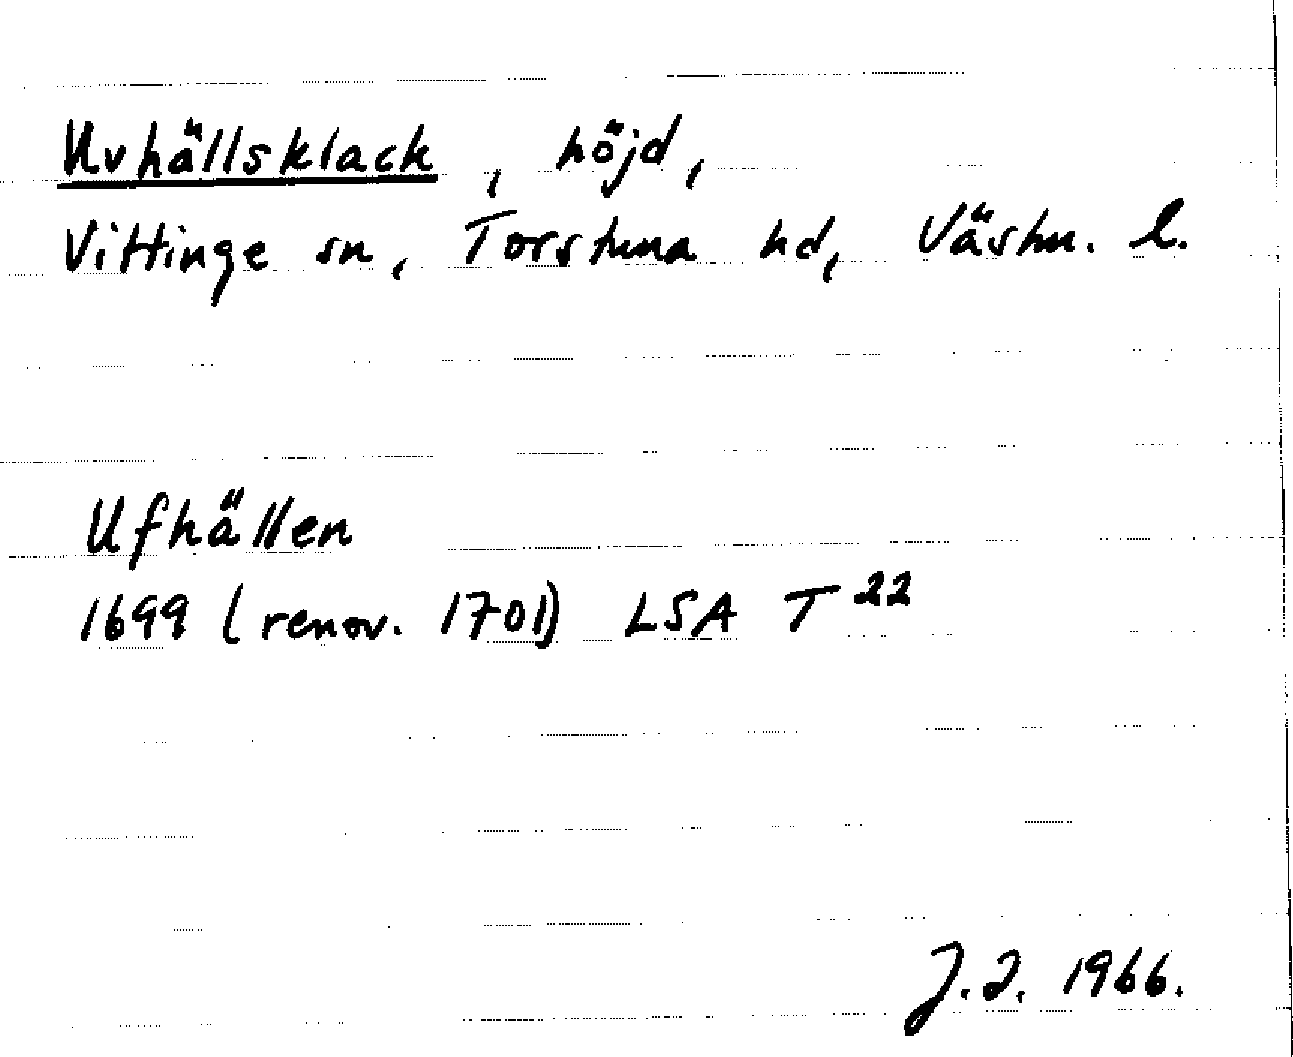 Uvhällsklack, höjd,
Vittinge sn, Torstuna hd, Västm. l.
Ufhällen
1699 (renov. 1701) LSA T 22
J.J. 1966.